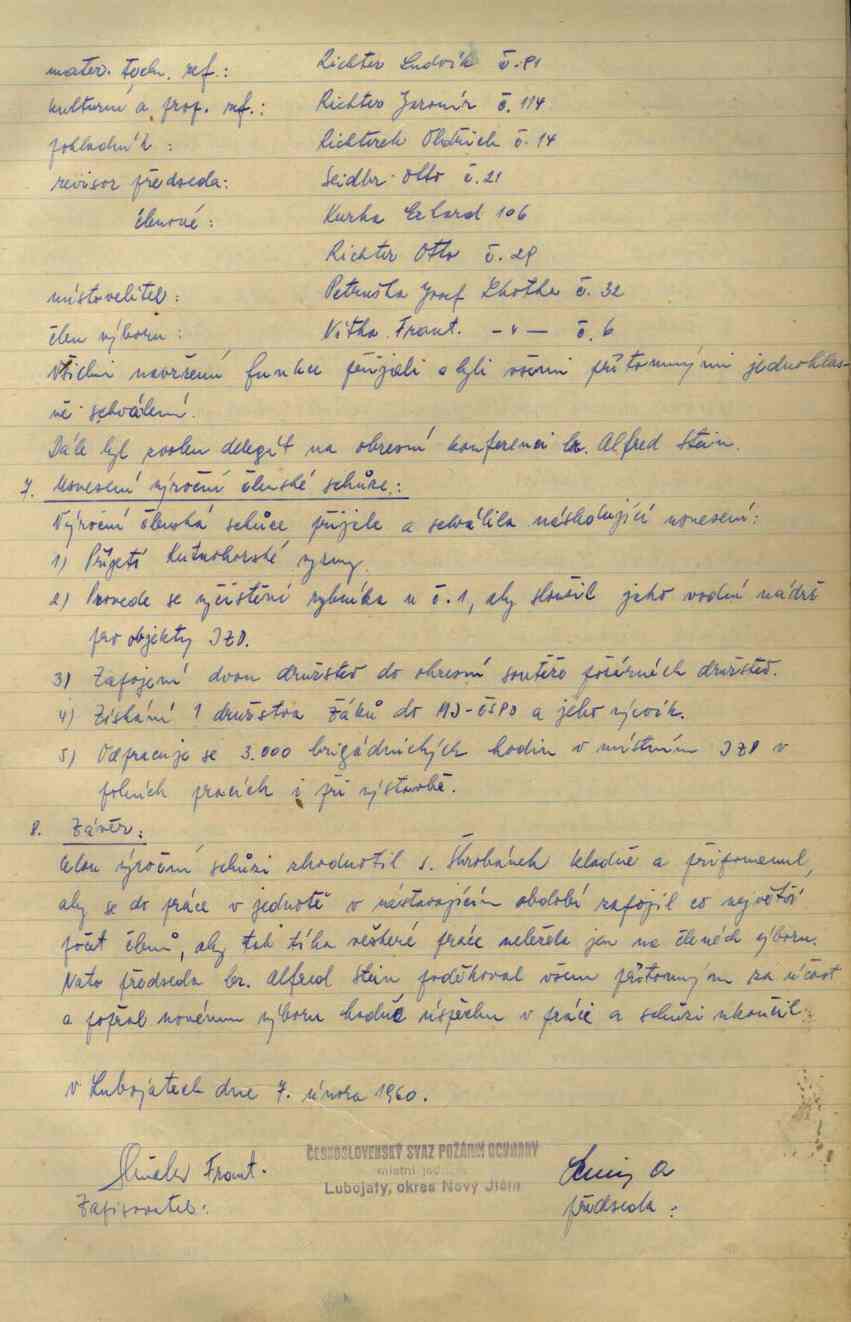 mater. techn. ref.: Richter Ludvík č. 81
kulturní a prop. ref.: Richter Jaromír č. 114
pokladník: Richterek Oldřich č. 14
revisor předseda: Seidler Otto č. 21
členové: Kurka Erhard 106
Richter Otto č. 29
místovelitel: Petruška Josef Lhotka č. 32
člen výboru: Vitka Frant. -"- č. 6
Všichni navržení funkce přijali a byli všemi přítomnými jednohlas-
ně schváleni.
Dále byl zvolen delegát na okresní konferenci br. Alfred Stein.
7. Usnesení výroční členské schůze:
Výroční členská schůze přijala a schválila následující usnesení:
1) Přijetí Kutnohorské výzvy.
2) Provede se vyčistění rybníka u č. 1, aby sloužil jako vodní nádrž
pro objekty JZD.
3) Zapojení dvou družstev do okresní soutěže požárních družstev.
4) Získání 1 družstva žáků do MJ-ČSPO a jeho výcvik.
5) Odpracuje se 3.000 brigádnických hodin v místním JZD v
polních pracích i při výstavbě.
8. Závěr:
Celou výroční schůzi zhodnotil s. Skrobánek kladně a připomenul,
aby se do práce v jednotě v nastávajícím období zapojil co největší
počet členů, aby tak tíha veškeré práce neležela jen na členech výboru.
Nato předseda br. Alfred Stein poděkoval všem přítomným za účast
a popřál novému výboru hodně úspěchu v práci a schůzi ukončil.
V Lubojatech dne 7. února 1960.
ČESKOSLOVENSKÝ SVAZ POŽÁRNÍ OCHRANY
místní jednota
Lubojaty, okres Nový Jičín
Frant.
Zapisovatel: předseda: